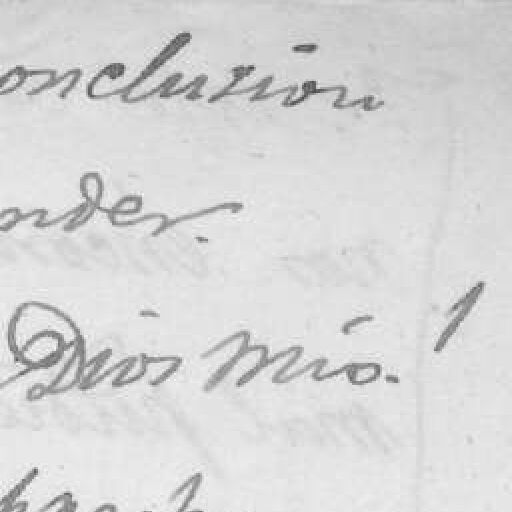 onclusion
nder.
Dios mío.!